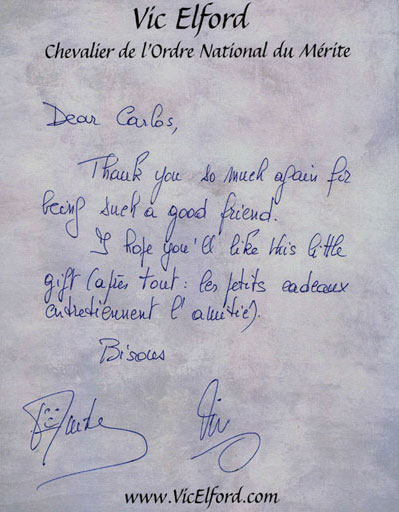 Vic Elford
Chevalier de l'Ordre National du Mérite
Dear Carlos,
Thank you so much again for
being such a good friend.
I hope you'll like this little
gift (après tout : les petits cadeaux
entretiennent l'amitié).
Bisous
Vic
www.VicElford.com